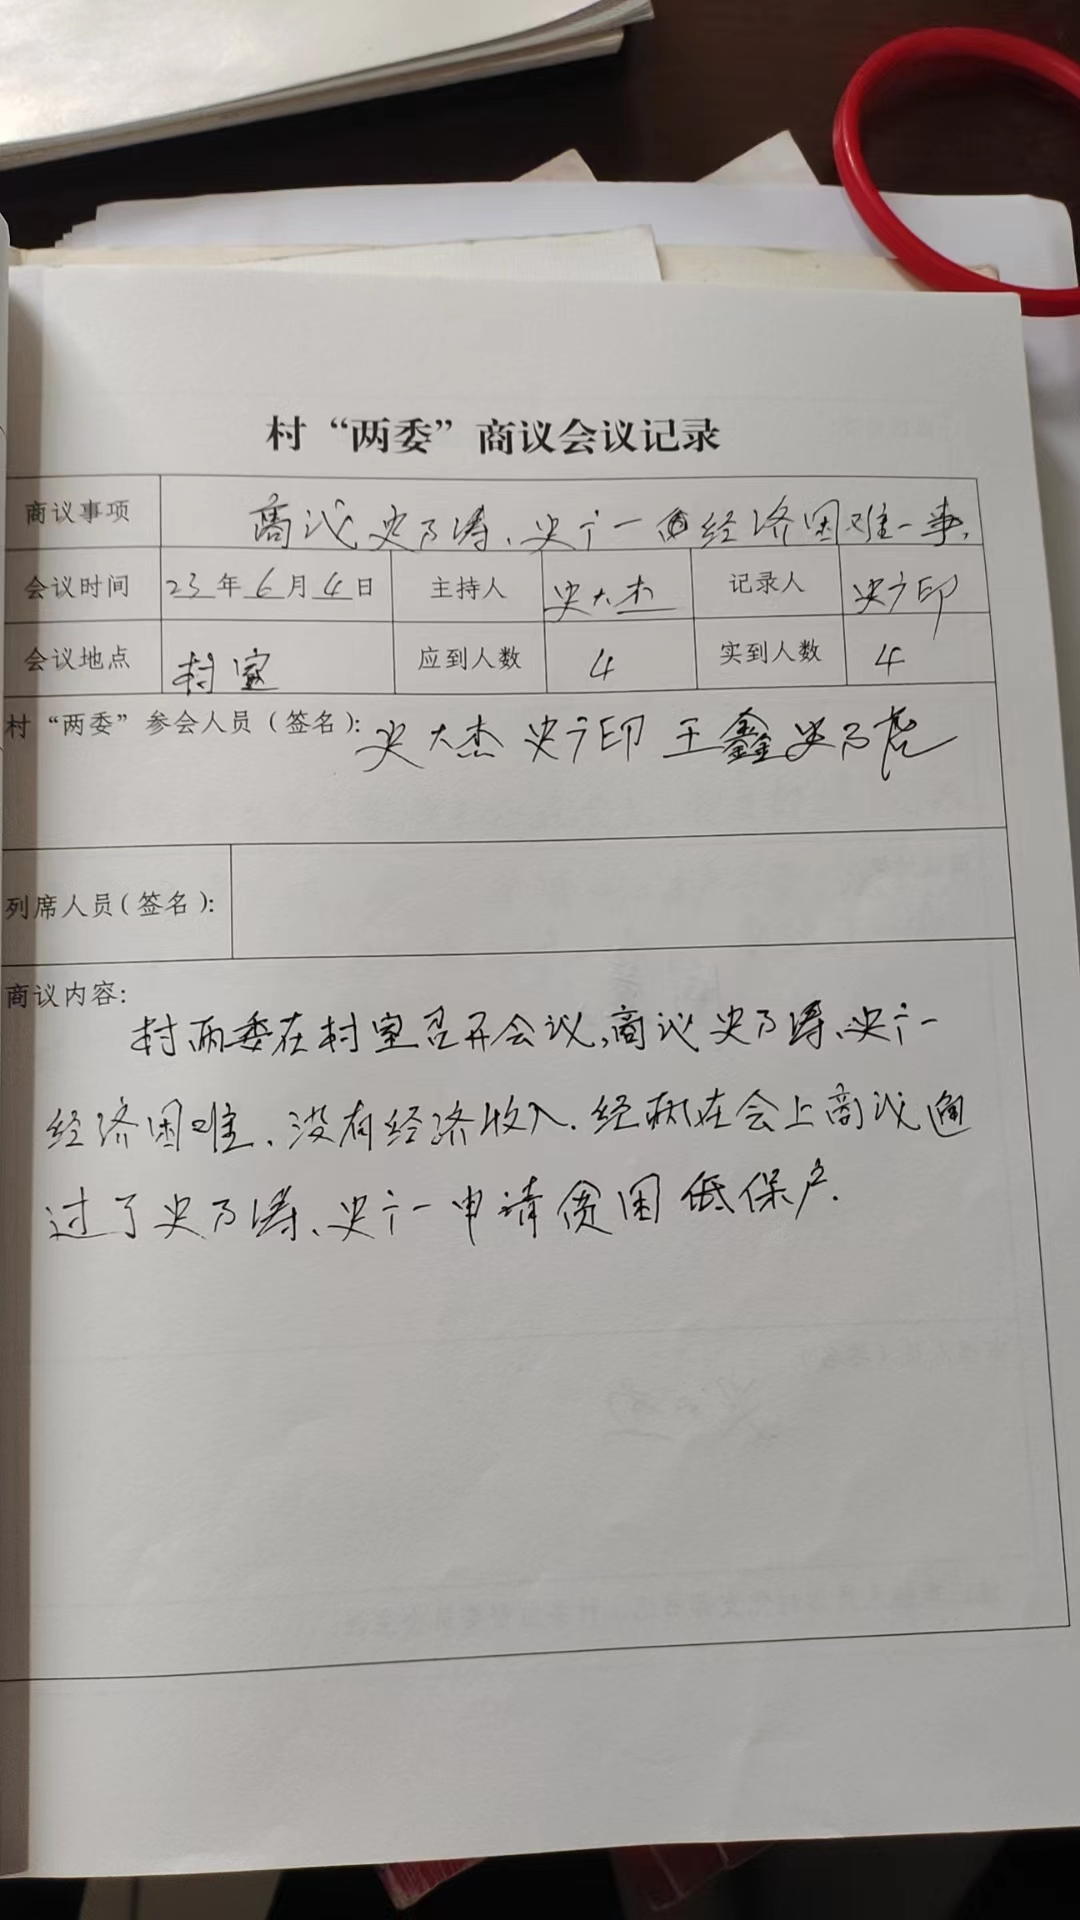 村“两委”商议会议记录
商议事项 商议史乃涛、史广一因经济困难一事.
会议时间 23年6月4日 主持人 史大杰 记录人 史广印
会议地点 村室 应到人数 4 实到人数 4
村“两委”参会人员（签名）： 史大杰 史广印 王鑫 史乃虎
列席人员（签名）：
商议内容：
村两委在村室召开会议,商议史乃涛、史广一
经济困难、没有经济收入.经 在会上商议通
过了史乃涛、史广一申请贫困低保户.